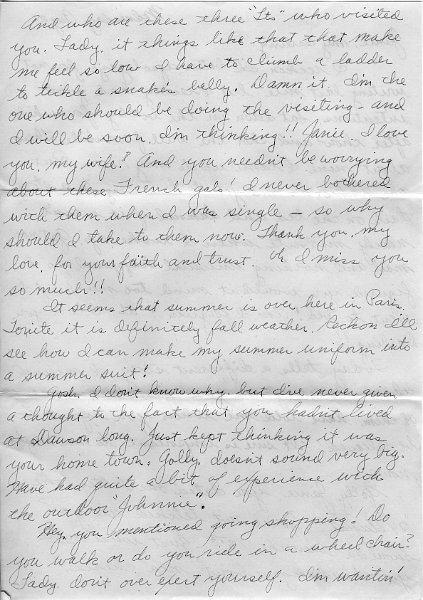 And who are these three "Lts" who visited
you. Lady, it things like that that make
me feel so low I have to climb a ladder
to tickle a snake's belly. Damn it, I'm the
one who should be doing the visiting - and
I will be soon, I'm thinking!! Janie, I love
you, my wife! And you needn't be worrying
about these French gals! I never bothered
with them when I was single - so why
should I take to them now. Thank you, my
love, for your faith and trust. Oh I miss you
so much!!
It seems that summer is over here in Paris.
Tonite it is definitely fall weather. Reckon I'll
see how I can make my summer uniform into
a summer suit!
Gosh, I don't know why, but I've never given
a thought to the fact that you hadn't lived
at Dawson long. Just kept thinking it was
your home town. Golly, doesn't sound very big.
Have had quite a bit of experience with
the outdoor "Johnnie".
Hey, you mentioned going shopping! Do
you walk or do you ride in a wheel chair?
Lady don't over exert yourself. I'm wantin'